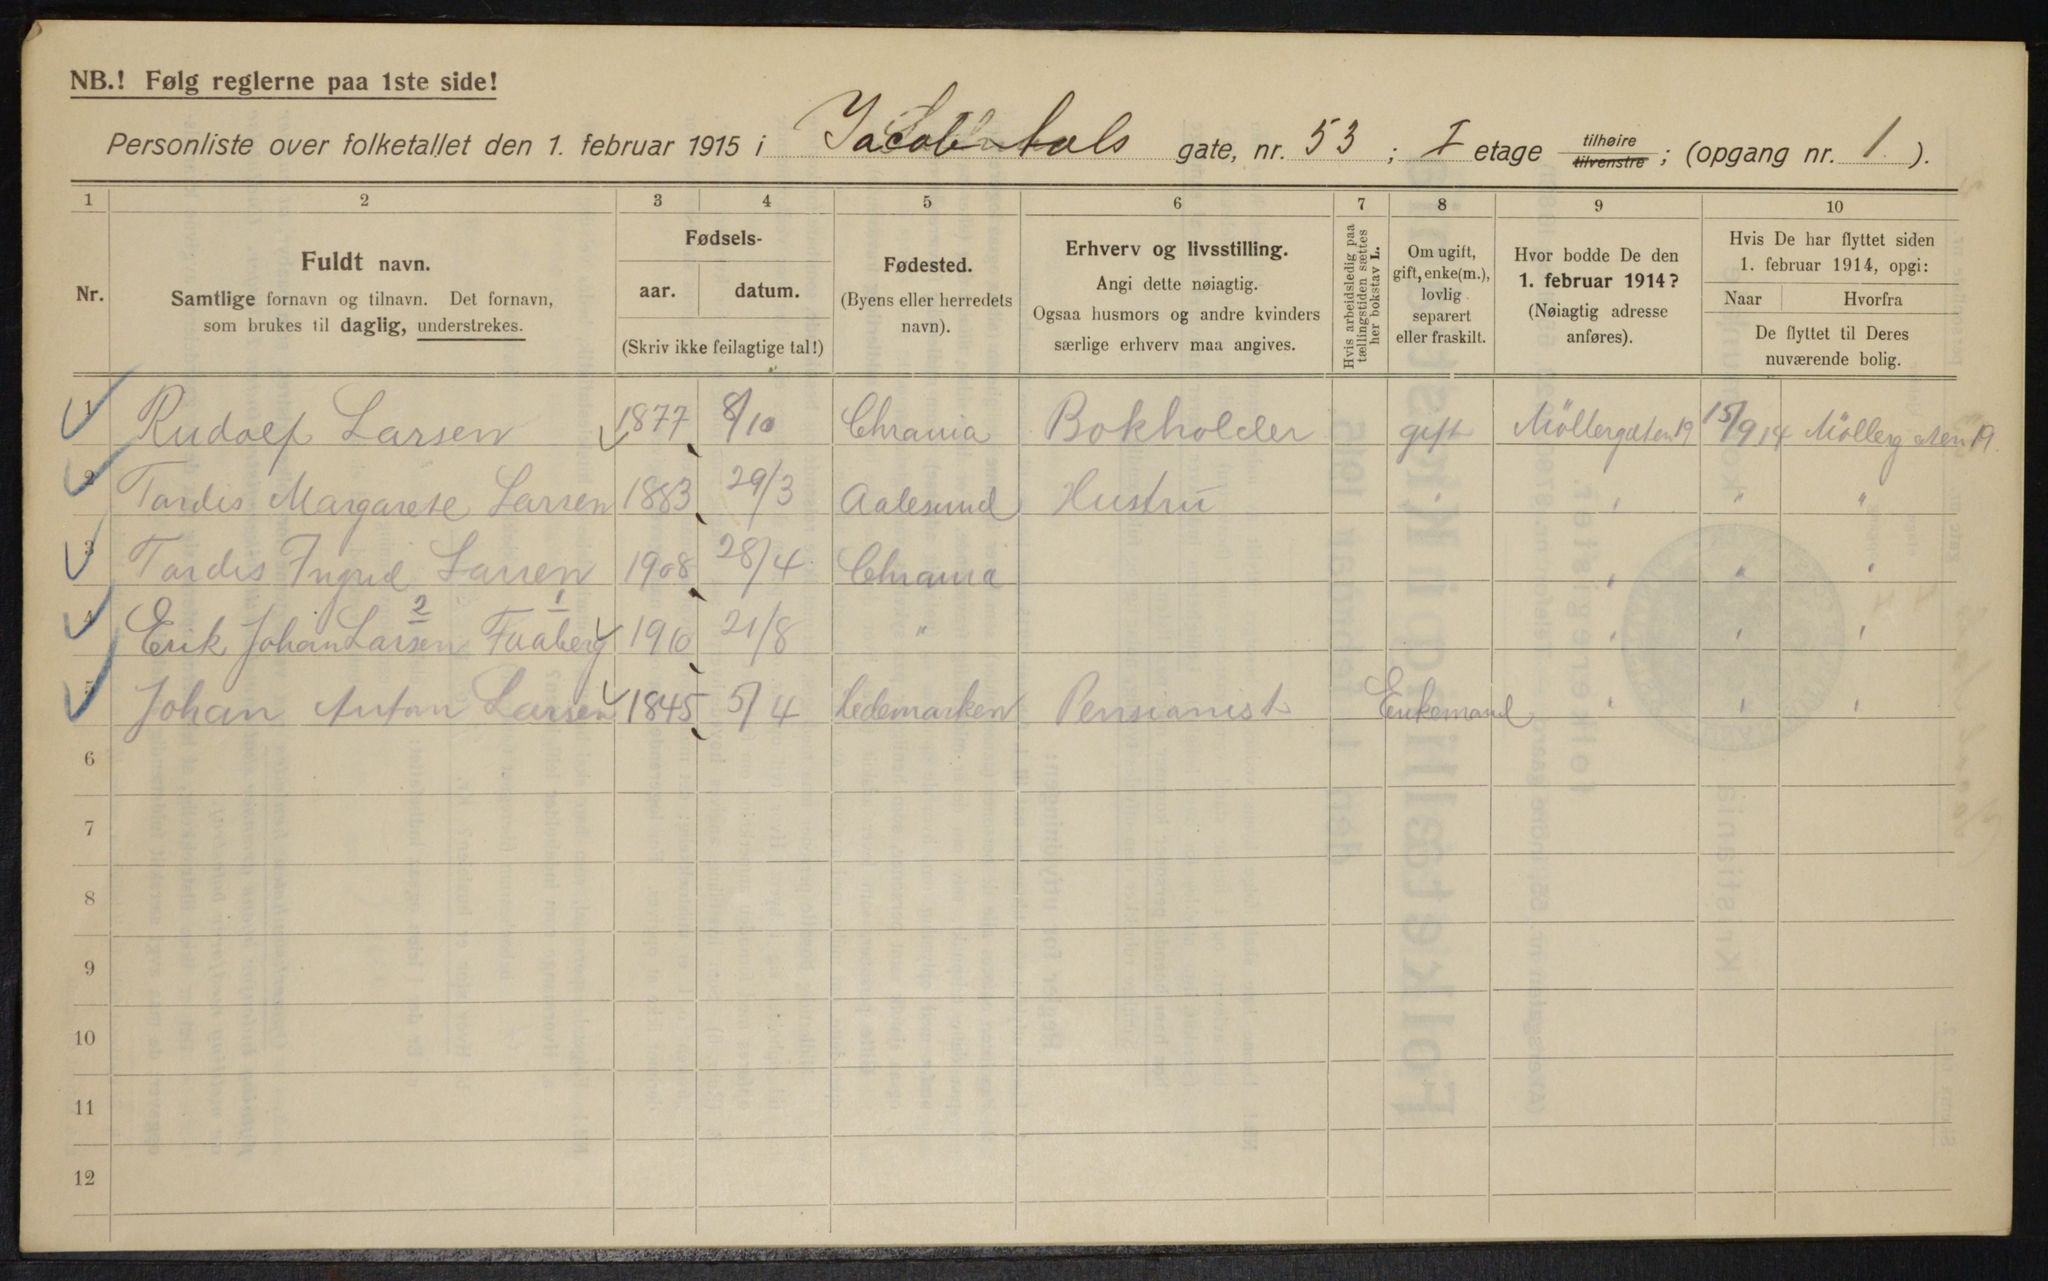 NB.! Følg reglerne paa 1ste side!
Personliste over folketallet den 1. februar 1915 i Jacob Aals gate, nr. 53 ; I etage tilhøire tilvenstre ; (opgang nr. 1 ).
1 2 3 4 5 6 7 8 9 10
Nr.
Fuldt navn.
Samtlige fornavn og tilnavn. Det fornavn,
som brukes til daglig, understrekes.
Fødsels-
aar. datum.
(Skriv ikke feilagtige tal!)
Fødested.
(Byens eller herredets
navn).
Erhverv og livsstilling.
Angi dette nøiagtig.
Ogsaa husmors og andre kvinders
særlige erhverv maa angives.
Hvis arbeidsledig paa
tællingstiden sættes
her bokstav L.
Om ugift,
gift, enke(m.),
lovlig
separert
eller fraskilt.
Hvor bodde De den
1. februar 1914?
(Nøiagtig adresse
anføres).
Hvis De har flyttet siden
1. februar 1914, opgi:
Naar Hvorfra
De flyttet til Deres
nuværende bolig.
1 Rudolf Larsen 1877 8/10 Chrania Bokholder gift Möllergaten 19 15/9 14 Möllergaten 19.
2 Tordis Margarete Larsen 1883 29/3 Aalesund Hustru " " " "
3 Tordis Ingrid Larsen 1908 28/4 Chrania " " "
2 1
4 Erik Johan Larsen Faaberg 1910 21/8 " " " "
5 Johan Anton Larsen 1845 5/4 Hedemarken Pensionist Enkemand " " "
6
7
8
9
10
11
12